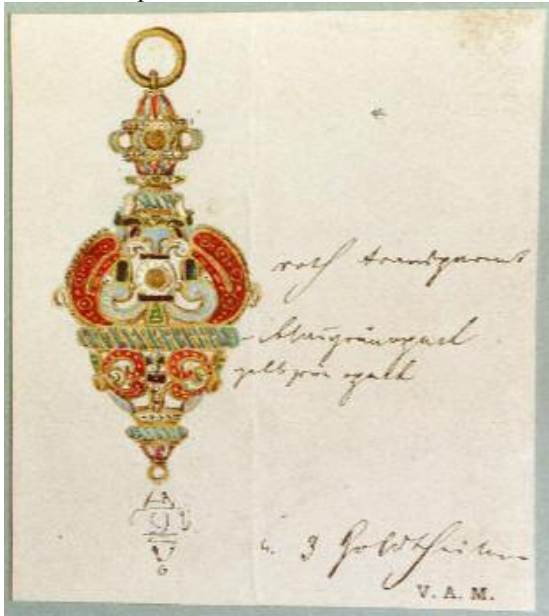 roth transparent
blaugrünopack
gelbgrün opack
3 Goldtheilen
V. A. M.